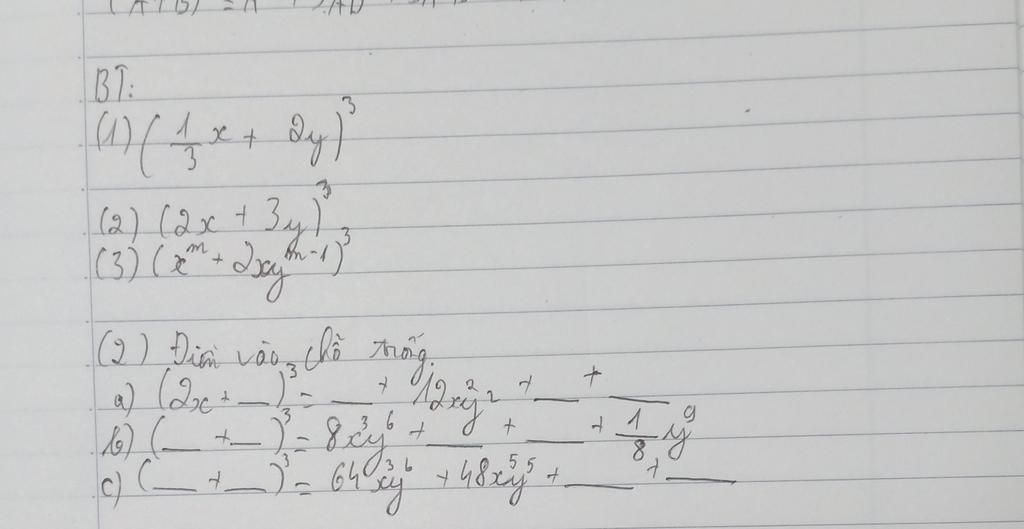 (A+B)³ = A³ +
BT:
(1) (1/3 x + 2y)³
(2) (2x + 3y)³
(3) (xᵐ + 2xyᵐ⁻¹)³
(2) Điền vào chỗ trống.
a) (2x + __)³ = __ + 12x²y² + __ + __
b) (__ + __)³ = 8x³y⁶ + __ + __ + 1/8 y⁹
c) (__ + __)³ = 64x³y⁶ + 48x⁵y⁵ + __ + __